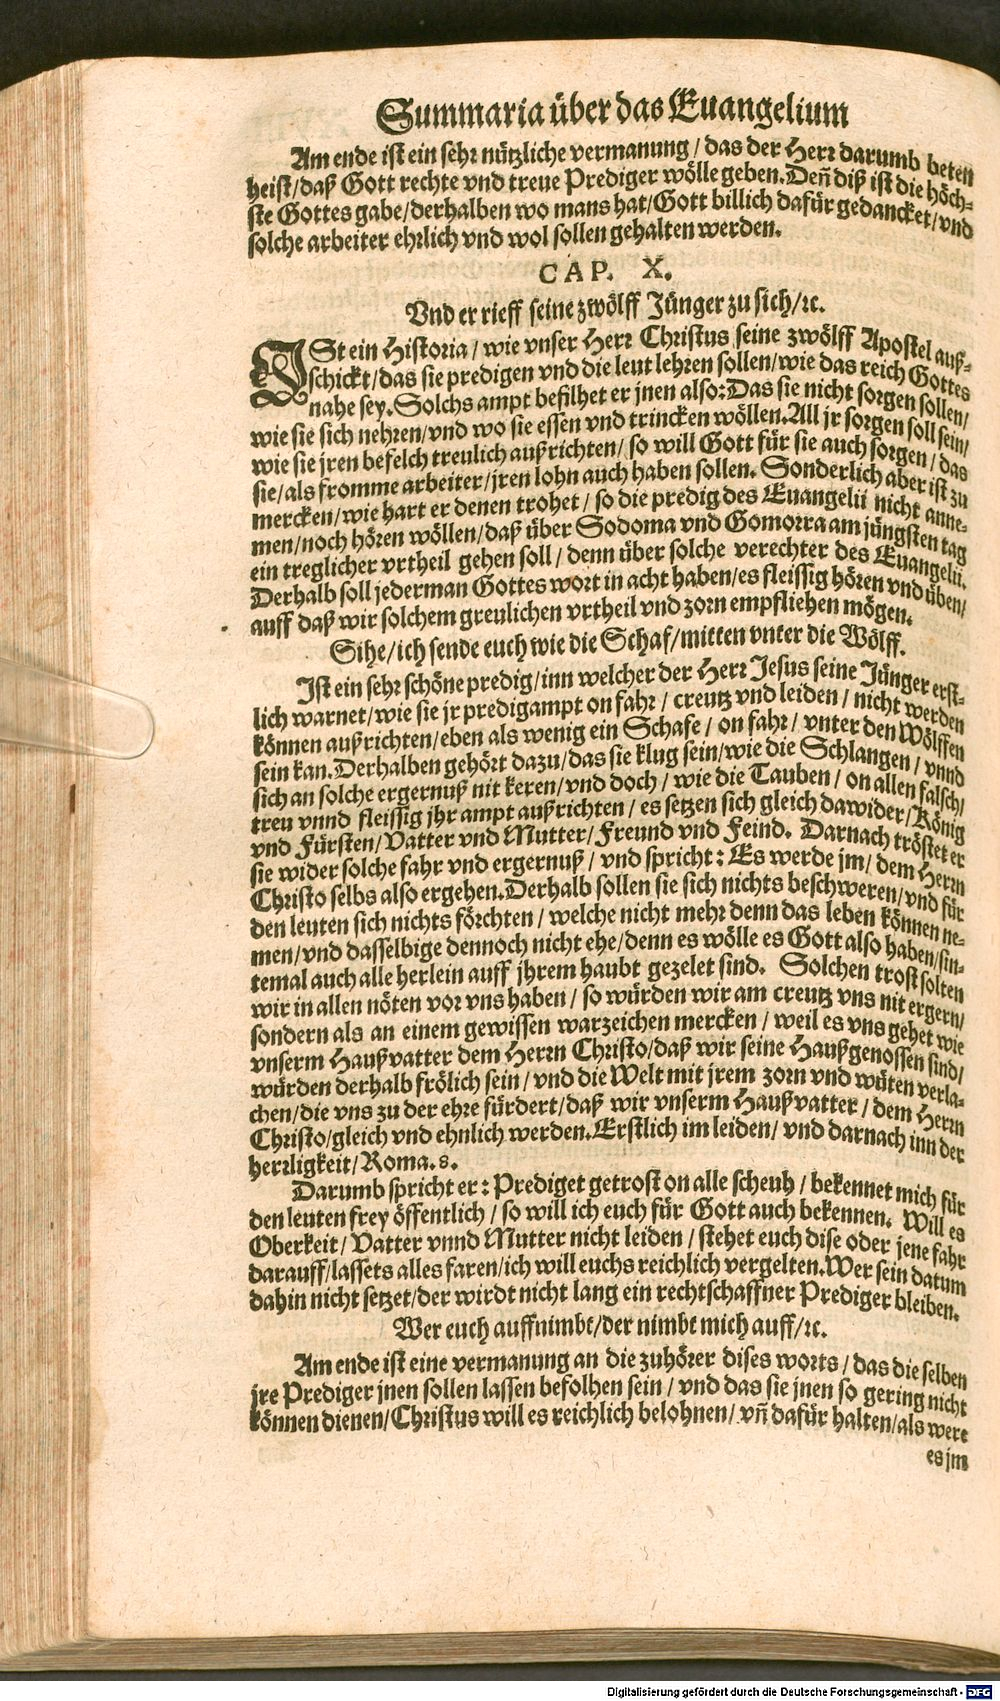 Summaria über das Euangelium
Am ende ist ein sehr nützliche vermanung / das der Herr darumb beten
heist/daß Gott rechte vnd treue Prediger wölle geben.Deñ diß ist die höch-
ste Gottes gabe/derhalben wo mans hat/Gott billich dafür gedancket/vnd
solche arbeiter ehrlich vnd wol sollen gehalten werden.
CAP. X.
Vnd er rieff seine zwölff Jünger zu sich/ꝛc.
JSt ein Historia / wie vnser Herr Christus seine zwölff Apostel auß-
schickt/das sie predigen vnd die leut lehren sollen/wie das reich Gottes
nahe sey.Solchs ampt befilhet er jnen also:Das sie nicht sorgen sollen/
wie sie sich nehren/vnd wo sie essen vnd trincken wöllen.All jr sorgen soll sein/
wie sie jren befelch treulich außrichten/ so will Gott für sie auch sorgen / das
sie/als fromme arbeiter/jren lohn auch haben sollen. Sonderlich aber ist zu
mercken/wie hart er denen trohet / so die predig des Euangelii nicht anne-
men/noch hören wöllen/daß über Sodoma vnd Gomorra am jüngsten tag
ein treglicher vrtheil gehen soll / denn über solche verechter des Euangelii.
Derhalb soll jederman Gottes wort in acht haben/es fleissig hören vnd üben/
auff daß wir solchem greulichen vrtheil vnd zorn empfliehen mögen.
Sihe/ich sende euch wie die Schaf/mitten vnter die Wölff.
Ist ein sehr schöne predig/inn welcher der Herr Jesus seine Jünger erst-
lich warnet/wie sie jr predigampt on fahr / creutz vnd leiden / nicht werden
können außrichten/eben als wenig ein Schafe / on fahr / vnter den Wölffen
sein kan.Derhalben gehört dazu/das sie klug sein/wie die Schlangen / vnnd
sich an solche ergernuß nit keren/vnd doch / wie die Tauben / on allen falsch/
treu vnnd fleissig jhr ampt außrichten / es setzen sich gleich dawider/König
vnd Fürsten/Vatter vnd Mutter/Freund vnd Feind. Darnach tröstet er
sie wider solche fahr vnd ergernuß / vnd spricht : Es werde jm/ dem Herrn
Christo selbs also ergehen.Derhalb sollen sie sich nichts beschweren/vnd für
den leuten sich nichts förchten / welche nicht mehr denn das leben können ne-
men/vnd dasselbige dennoch nicht ehe/denn es wölle es Gott also haben/sin-
temal auch alle herlein auff jhrem haubt gezelet sind. Solchen trost solten
wir in allen nöten vor vns haben / so würden wir am creutz vns nit ergern/
sondern als an einem gewissen warzeichen mercken / weil es vns gehet wie
vnserm Haußvatter dem Herrn Christo/daß wir seine Haußgenossen sind/
würden derhalb frölich sein / vnd die Welt mit jrem zorn vnd wüten verla-
chen/die vns zu der ehre fürdert/daß wir vnserm Haußvatter / dem Herrn
Christo/gleich vnd ehnlich werden.Erstlich im leiden/ vnd darnach inn der
herrligkeit/Roma.8.
Darumb spricht er : Prediget getrost on alle scheuh / bekennet mich für
den leuten frey öffentlich / so will ich euch für Gott auch bekennen. Will es
Oberkeit/ Vatter vnnd Mutter nicht leiden / stehet euch dise oder jene fahr
darauff/lassets alles faren/ich will euchs reichlich vergelten.Wer sein datum
dahin nicht setzet/der wirdt nicht lang ein rechtschaffner Prediger bleiben.
Wer euch auffnimbt/der nimbt mich auff/ꝛc.
Am ende ist eine vermanung an die zuhörer dises worts / das die selben
jre Prediger jnen sollen lassen befolhen sein / vnd das sie jnen so gering nicht
können dienen/Christus will es reichlich belohnen/ vñ dafür halten/als were
es jm
Digitalisierung gefördert durch die Deutsche Forschungsgemeinschaft - DFG